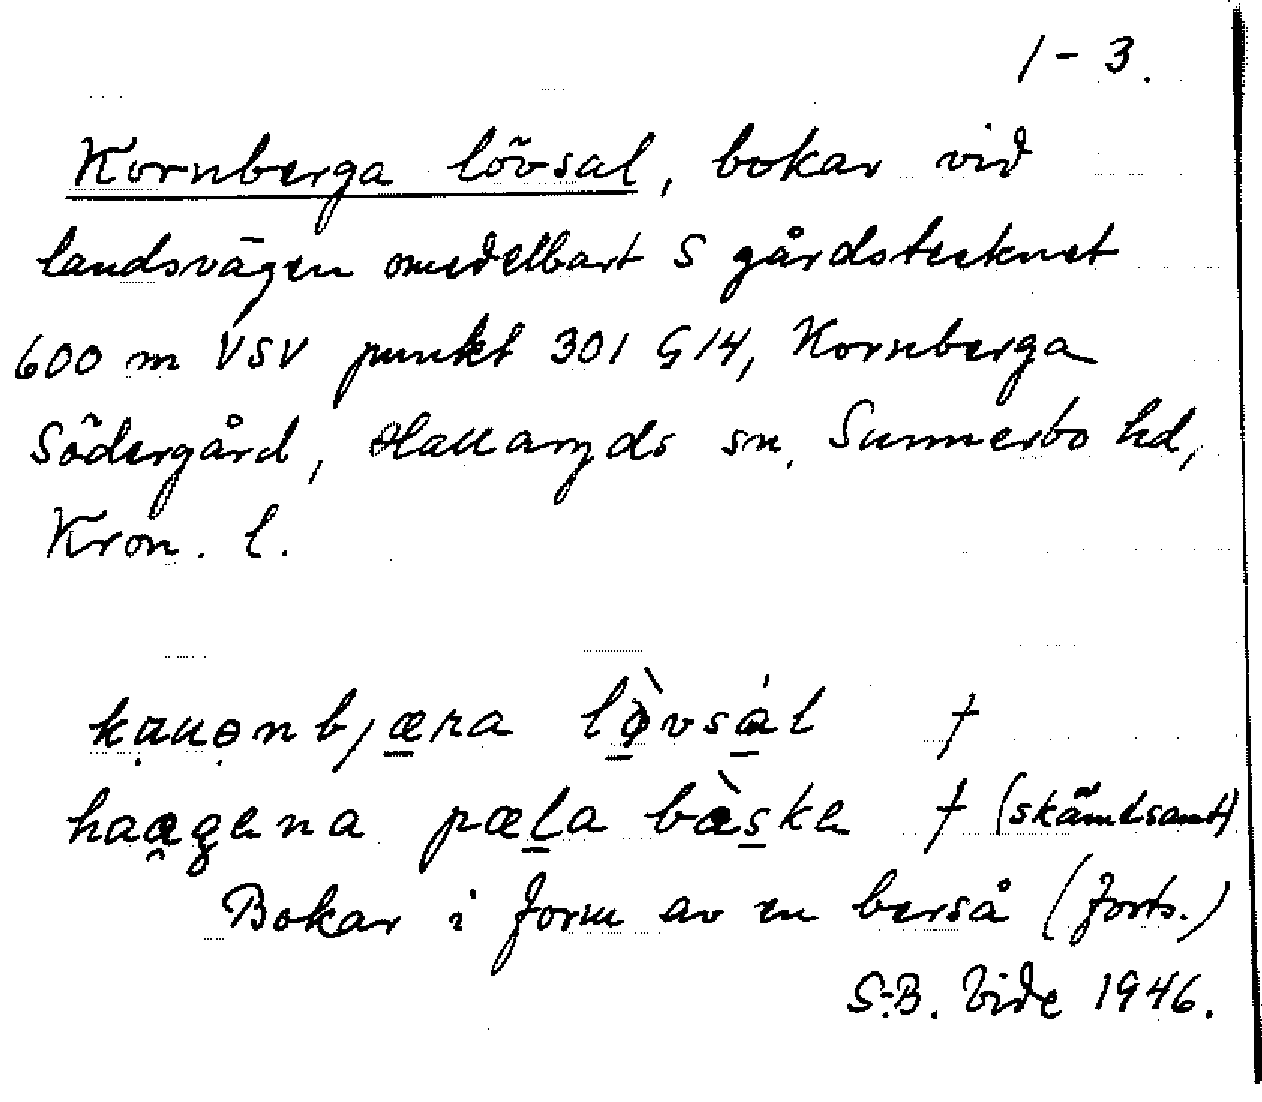 1-3.
Kornberga lövsal, bokar vid
landsvägen omedelbart S gårdstecknet
600 m VSV punkt 301 G14, Kornberga
Södergård, Hallaryds sn, Sunnerbo hd,
Kron. l.
lòvsál †
pæla bæ̀ske † (skämtsamt)
Bokar i form av en berså (forts.)
S.-B. Vide 1946.